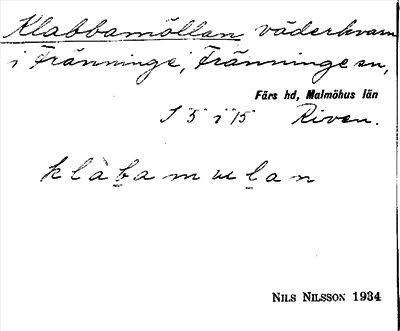 Klabbamöllan väderkvarn
i Fränninge, Fränninge sn,
Färs hd, Malmöhus län
Riven.
klàbamulan
NILS NILSSON 1934